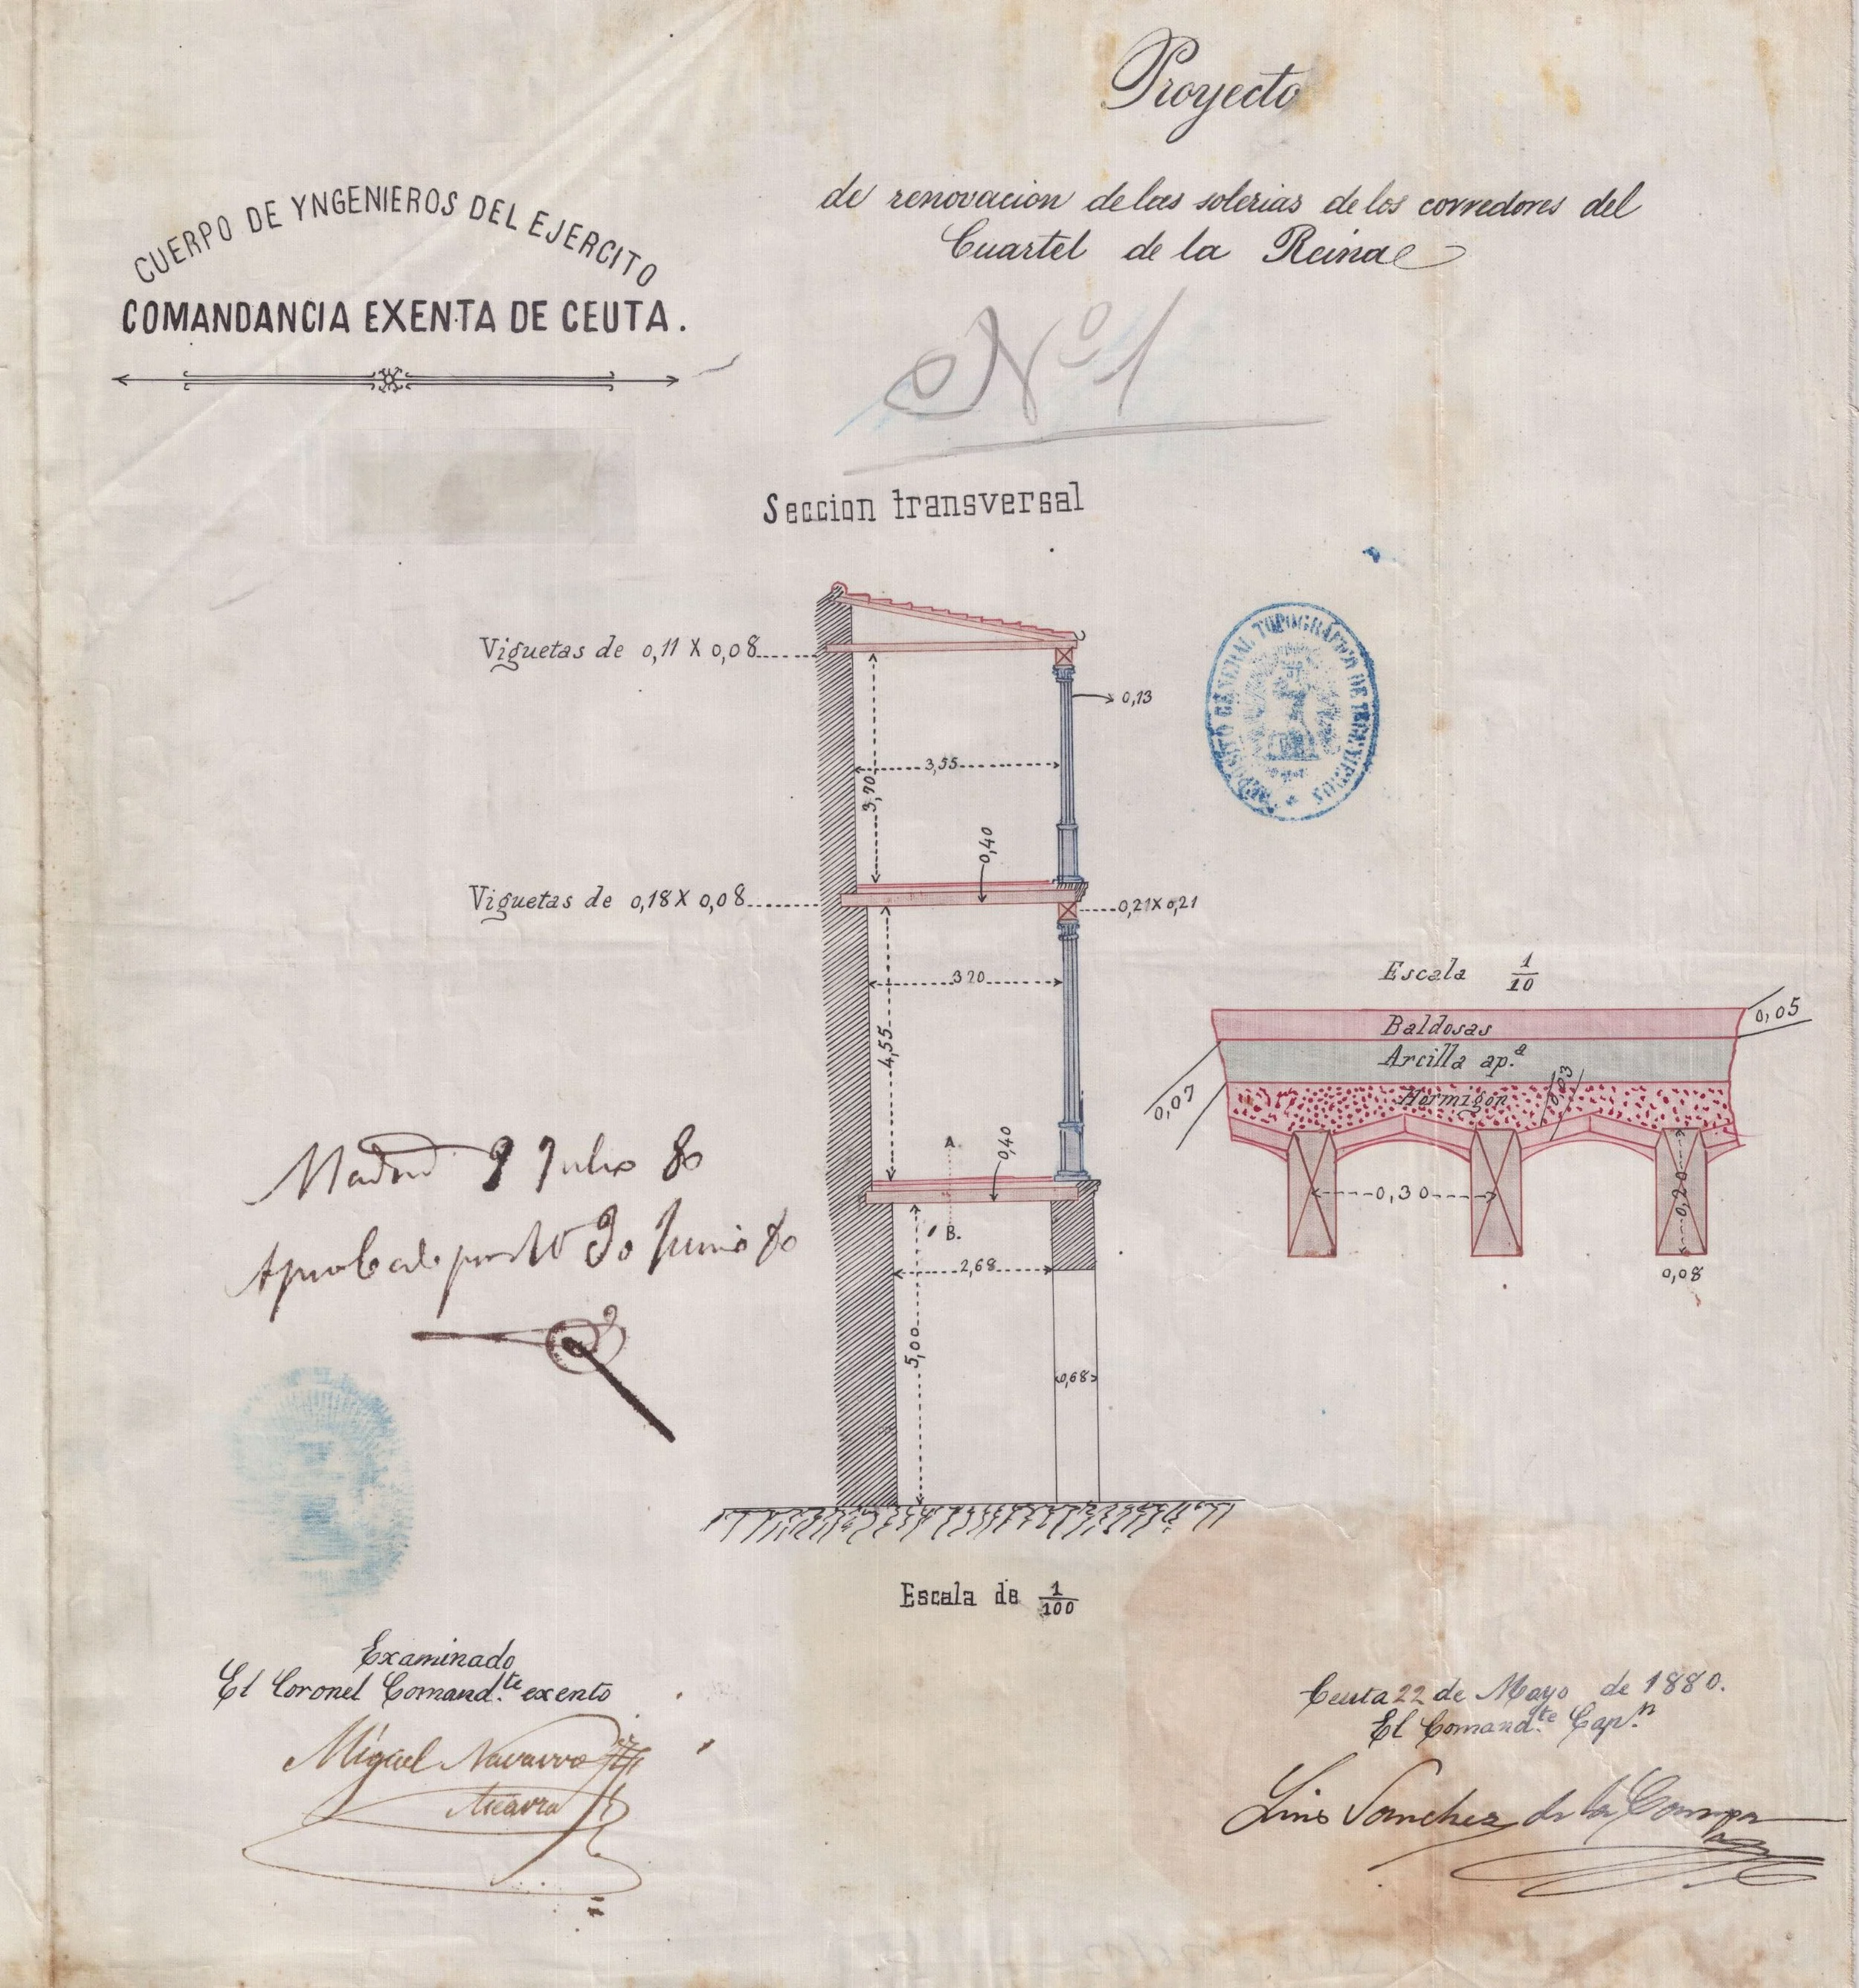 Proyecto
de renovacion de las solerias de los corredores del
Cuartel de la Reina
CUERPO DE YNGENIEROS DEL EJERCITO
COMANDANCIA EXENTA DE CEUTA.
Nº 1
Seccion transversal
Viguetas de 0,11 X 0,08
0,13
3,55
3,70
0,40
Viguetas de 0,18 X 0,08
0,21 X 0,21
3 20
4,55
A.
0,40
B.
2,68
5,00
0,68
Escala de 1/100
DEPOSITO GENERAL TOPOGRÁFICO DE INGENIEROS
Escala 1/10
Baldosas
0,05
Arcilla ap.ª
0,07
Hormigón
0,03
0,30
0,20
0,08
Madrid 9 Julio 80
Aprobado por 30 Junio 80
Examinado
El Coronel Comand.te exento
Miguel Navarro
Ceuta 22 de Mayo de 1880.
El Comand.te Cap.n
Lino Sanchez de la Campa